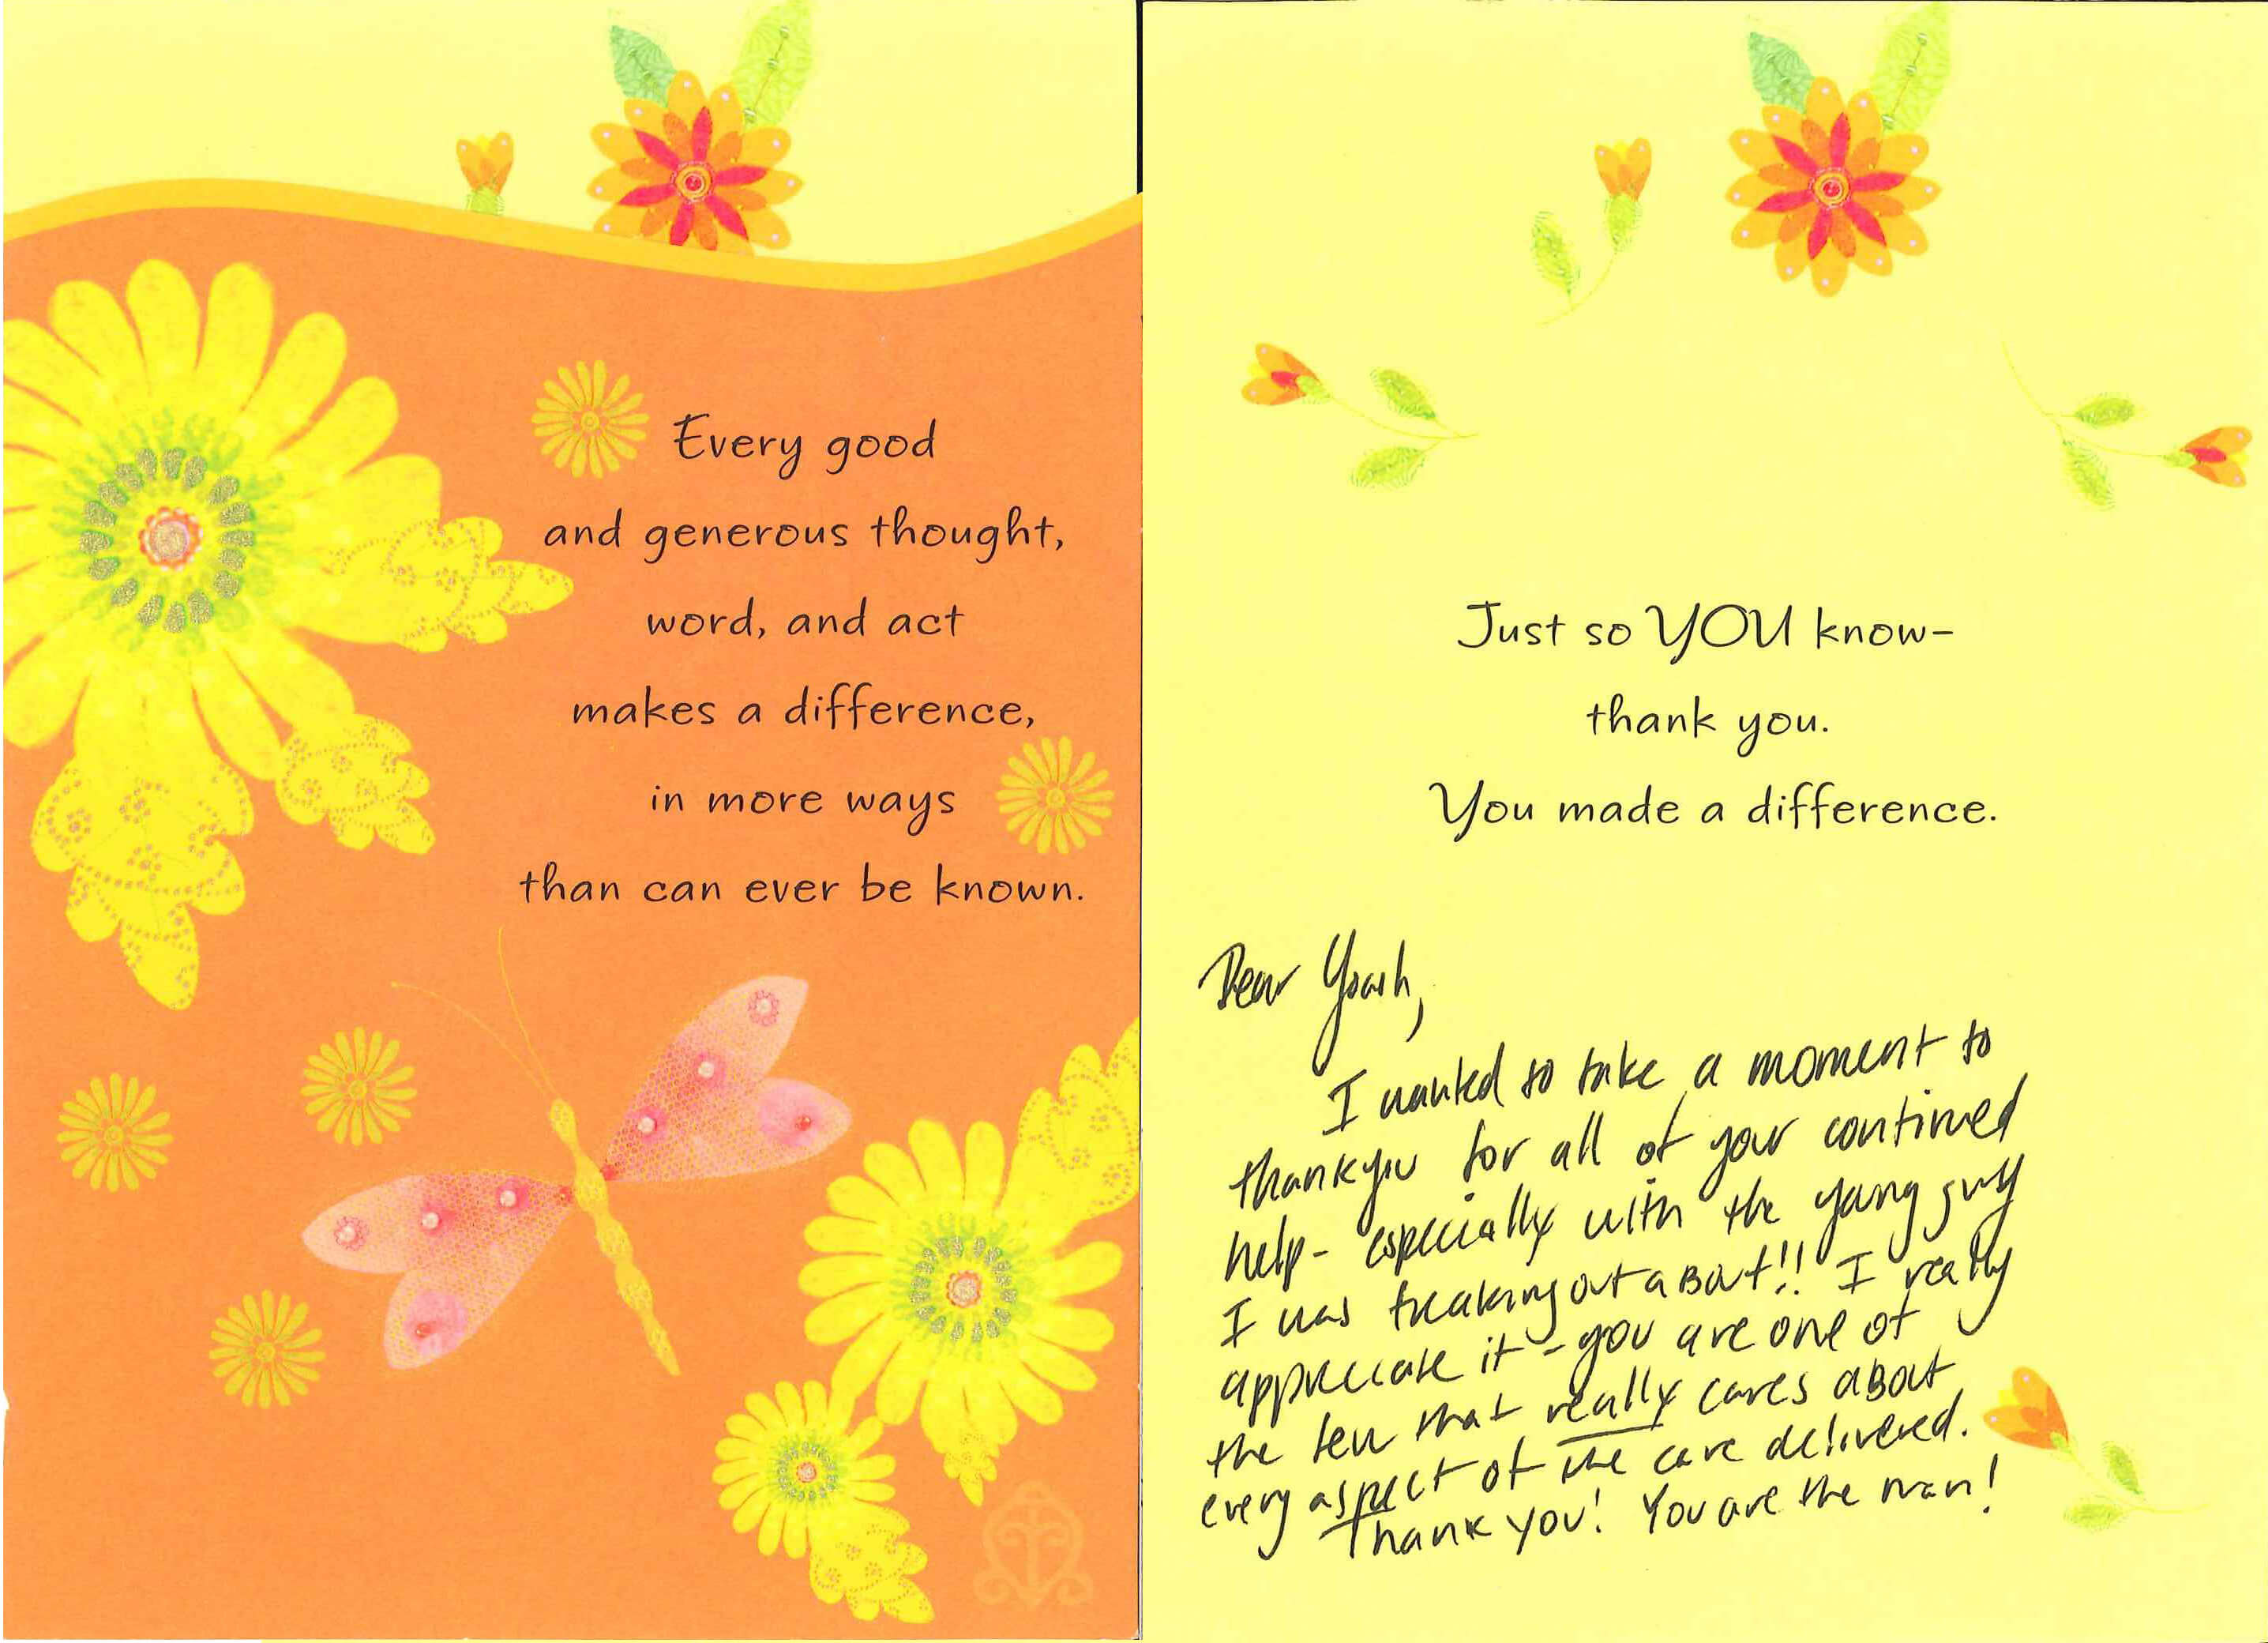 Every good
and generous thought,
word, and act
makes a difference,
in more ways
than can ever be known.
Just so YOU know-
thank you.
You made a difference.
Dear Yoash,
I wanted to take a moment to
thankyou for all of your continued
help- especially with the young guy
I was freaking out aBout!! I really
appreciate it - you are one of
the few that really cares aBout
every aspect of the care delivered.
Thank you! You are the man!